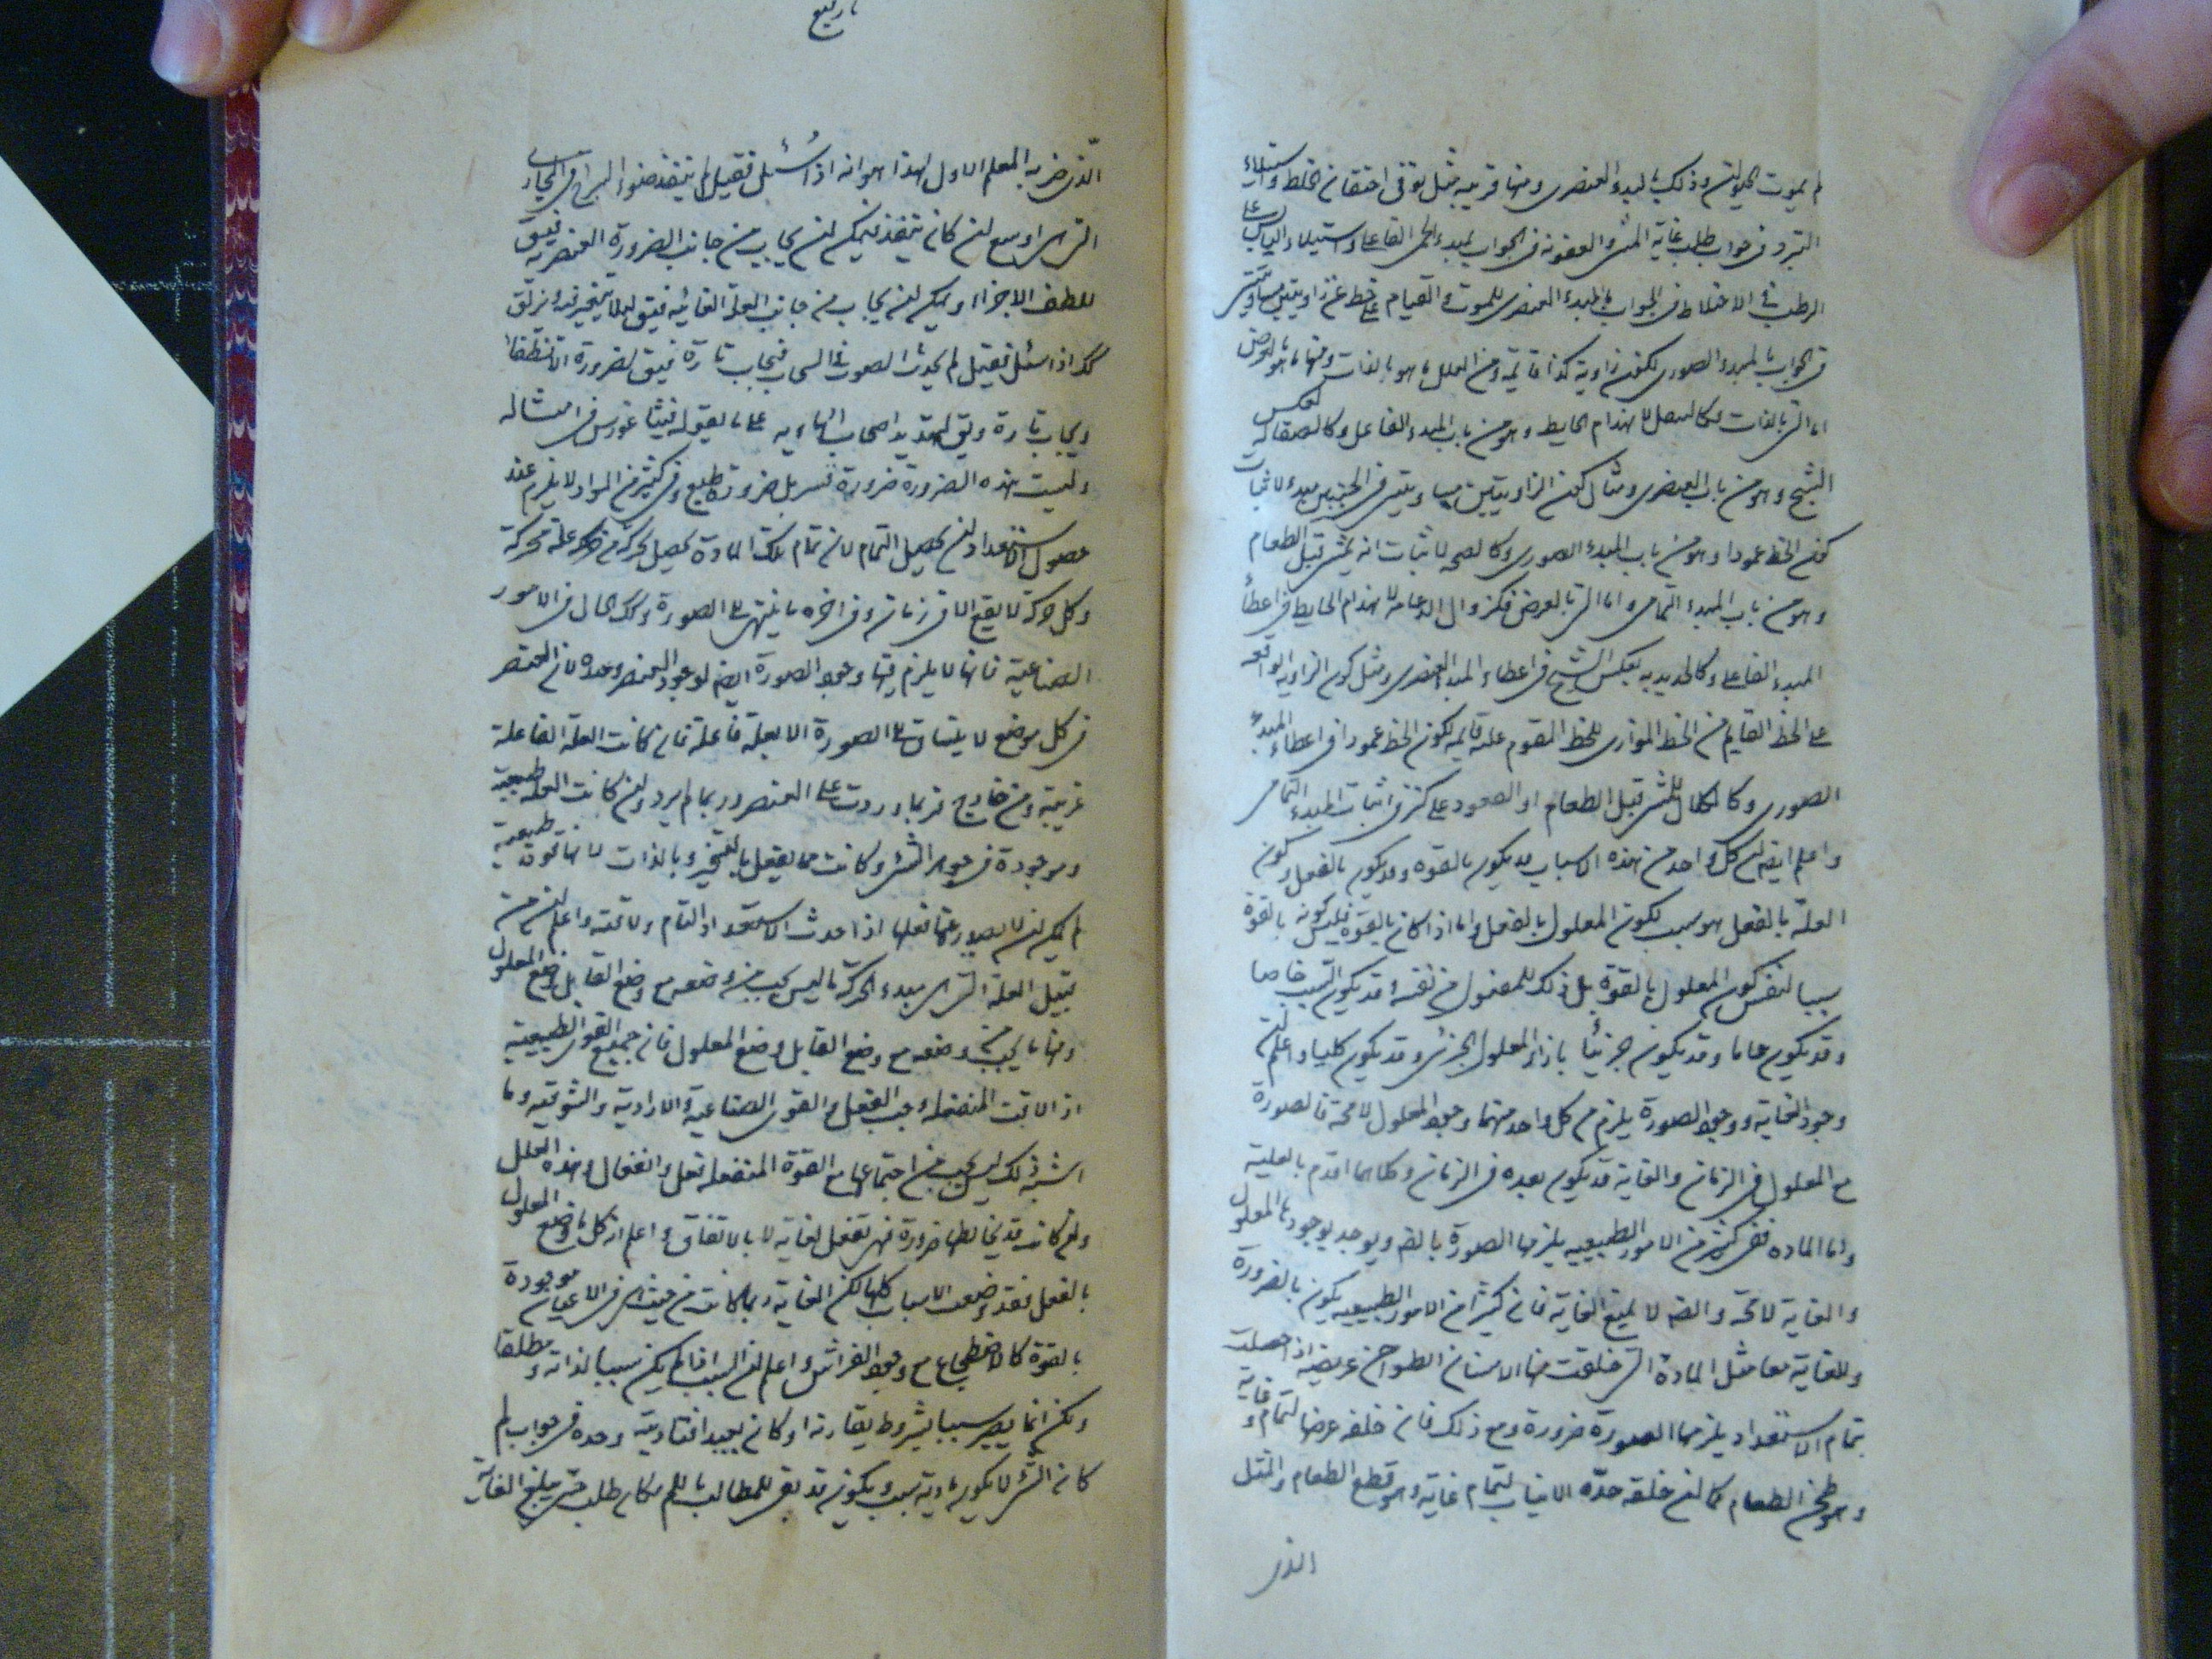 لم يموت الحيوان وذلك بالمبدء العنصرى ومنها قريبه مثل توقى احتقان خلط واستيلاء
البرد فى جواب طلب غاية المشى والعفونة فى الجواب بمبدء الحمى الفاعلى واستيلاء اليابس على
الرطب فى الاخلاط فى الجواب بالمبدء العنصرى للموت والقيام على خط عن زاويتين متساويتين
فى الجواب بالمبدء الصورى لكون زاوية كذا قايمة ومن العلل ما هو بالذات ومنها ما هو بالعرض
اما التى بالذات فكالثقل لانهدام الحايط وهو من باب المبدء الفاعل وكالصقالة لعكس
الشبح وهو من باب العنصرى ومثال كون الزاويتين متساويتين فى الجنبين مبدء لاثبات
كون الخط عمودا وهو من باب المبدء الصورى وكالصحه لاثبات انه يمشى قبل الطعام
وهو من باب المبدء التمامى واما التى بالعرض فكزوال الدعامه لانهدام الحايط فى اعطاء
المبدء الفاعلى وكالحديديه بعكس الشبح فى اعطاء المبدء العنصرى ومثل كون الزاويه الواقعه
على الخط القايم من الخط الموازى للخط المقوم عليه قايمه لكون الخط عمودا فى اعطاء المبدء
الصورى وكالكلال للمشى قبل الطعام او الصعود على كنز فى اثبات المبدء التمامى
واعلم ايضا ان كل واحد من هذه الاسباب قد يكون بالقوه وقد يكون بالفعل وكون
العلة بالفعل هو سبب لكون المعلول بالفعل واما اذا كان بالقوة فليس كونه بالقوة
سببا لنفس كون المعلول بالقوة بل ذلك للمعلول من نفسه وقد يكون السبب خاصا
وقد يكون عاما وقد يكون جزئيا بازاء المعلول الجزئى وقد يكون كليا واعلم ان
وجود الغاية ووجود الصورة يلزم من كل واحد منهما وجود المعلول لا محة فالصورة
مع المعلول فى الزمان والغاية قد يكون بعده فى الزمان وكلاهما اقدم بالعليه
واما الماده ففى كثير من الامور الطبيعيه يلزمها الصورة بالضه ويوجد بوجودها المعلول
والغاية لا محة والضه لا يمنع الغاية فان كثيرا من الامور الطبيعيه يكون بالضرورة
وللغاية معا مثل المادة التى خلقت منها الاسنان الطواحن عريضه اذا حصلت
بتمام الاستعداد يلزمها الصورة ضرورة ومع ذلك فان خلقه عرضها لتمام وغاية
وهو طحن الطعام كما ان خلقه حدة الانياب لتمام غاية وهو قطع الطعام والمثل
الذى
الذى ضربه المعلم الاول لهذا هو انه اذا سئل فقيل لم ينفذ ضوء السراج فى المجارى
التى هى اوسع ان كان ينفذ فيمكن ان يجاب من جانب الضرورة العنصرية فيق
للطف الاجزاء ويمكن ان يجاب من جانب العلة الغائية فيق لئلا يتحير فيه وينزلق
كك اذا سئل فقيل لم يحدث الصوت فى السحاب فيجاب تارة فيق لضرورة الانطفاء
ويجاب تارة ويق لتهديد اصحاب الهاويه على ما يقوله فيثاغورس فى امثاله
وليست هذه الضرورة ضرورة قسر بل ضرورة طبع وفى كثير من المواد لا يلزم عند
حصول الاستعداد ان يحصل التمام لان تمام تلك المادة يحصل بحركة من علة محركة
وكل حركة لا يقع الا فى زمان وفى اخره ما ينتهى الى الصورة وكك الحال فى الامور
الصناعية فانها لا يلزم فيها وجود الصورة ايضا لوجود العنصر وحده لان العنصر
فى كل موضع لا ينساق الى الصورة الا بعلة فاعلة فان كانت العلة الفاعلة
غريبة ومن خارج فربما وردت على العنصر وربما لم يرد وان كانت العله طبيعية
وموجودة فى جوهر الشئ وكانت مما يفعل بالتسخير وبالذات لانها قوة طبيعية
لم يمكن ان لا يصدر عنها فعلها اذا حدث الاستعداد التام ولا محة واعلم ان من
قبيل العلة التى هى مبدء الحركة ما ليس يجب من وضعه مع وضع القابل وضع المعلول
ومنها ما يجب من وضعه مع وضع القابل وضع المعلول فان جميع القوى الطبيعية
اذا لاقت المنفعلة وجب الفعل والقوى الصناعية والارادية والشوقيه وما
اشبه ذلك ليس يجب من اجتماعها مع القوة المنفعلة فعل وانفعال وهذه العلل
وان كانت قد يخالطها ضرورة فهى تفعل لغاية لا بالاتفاق واعلم ان كل ما وضع المعلول
بالفعل فقد وضعت الاسباب كلها لكن الغاية ربما كانت من حيث هى فى الاعيان موجودة
بالقوة كالاضطجاع مع وجود الفراش واعلم ان السبب اذا لم يكن سببا لذاته ومطلقا
ولكن انما يصير سببا بشروط يقارنه او كان بعيدا فتاديته وحده فى جواب لم
كان الشئ لا يكون تادية سبب ويكون قد بقى للمطالب بلم مكان طلب حتى يبلغ الغاية